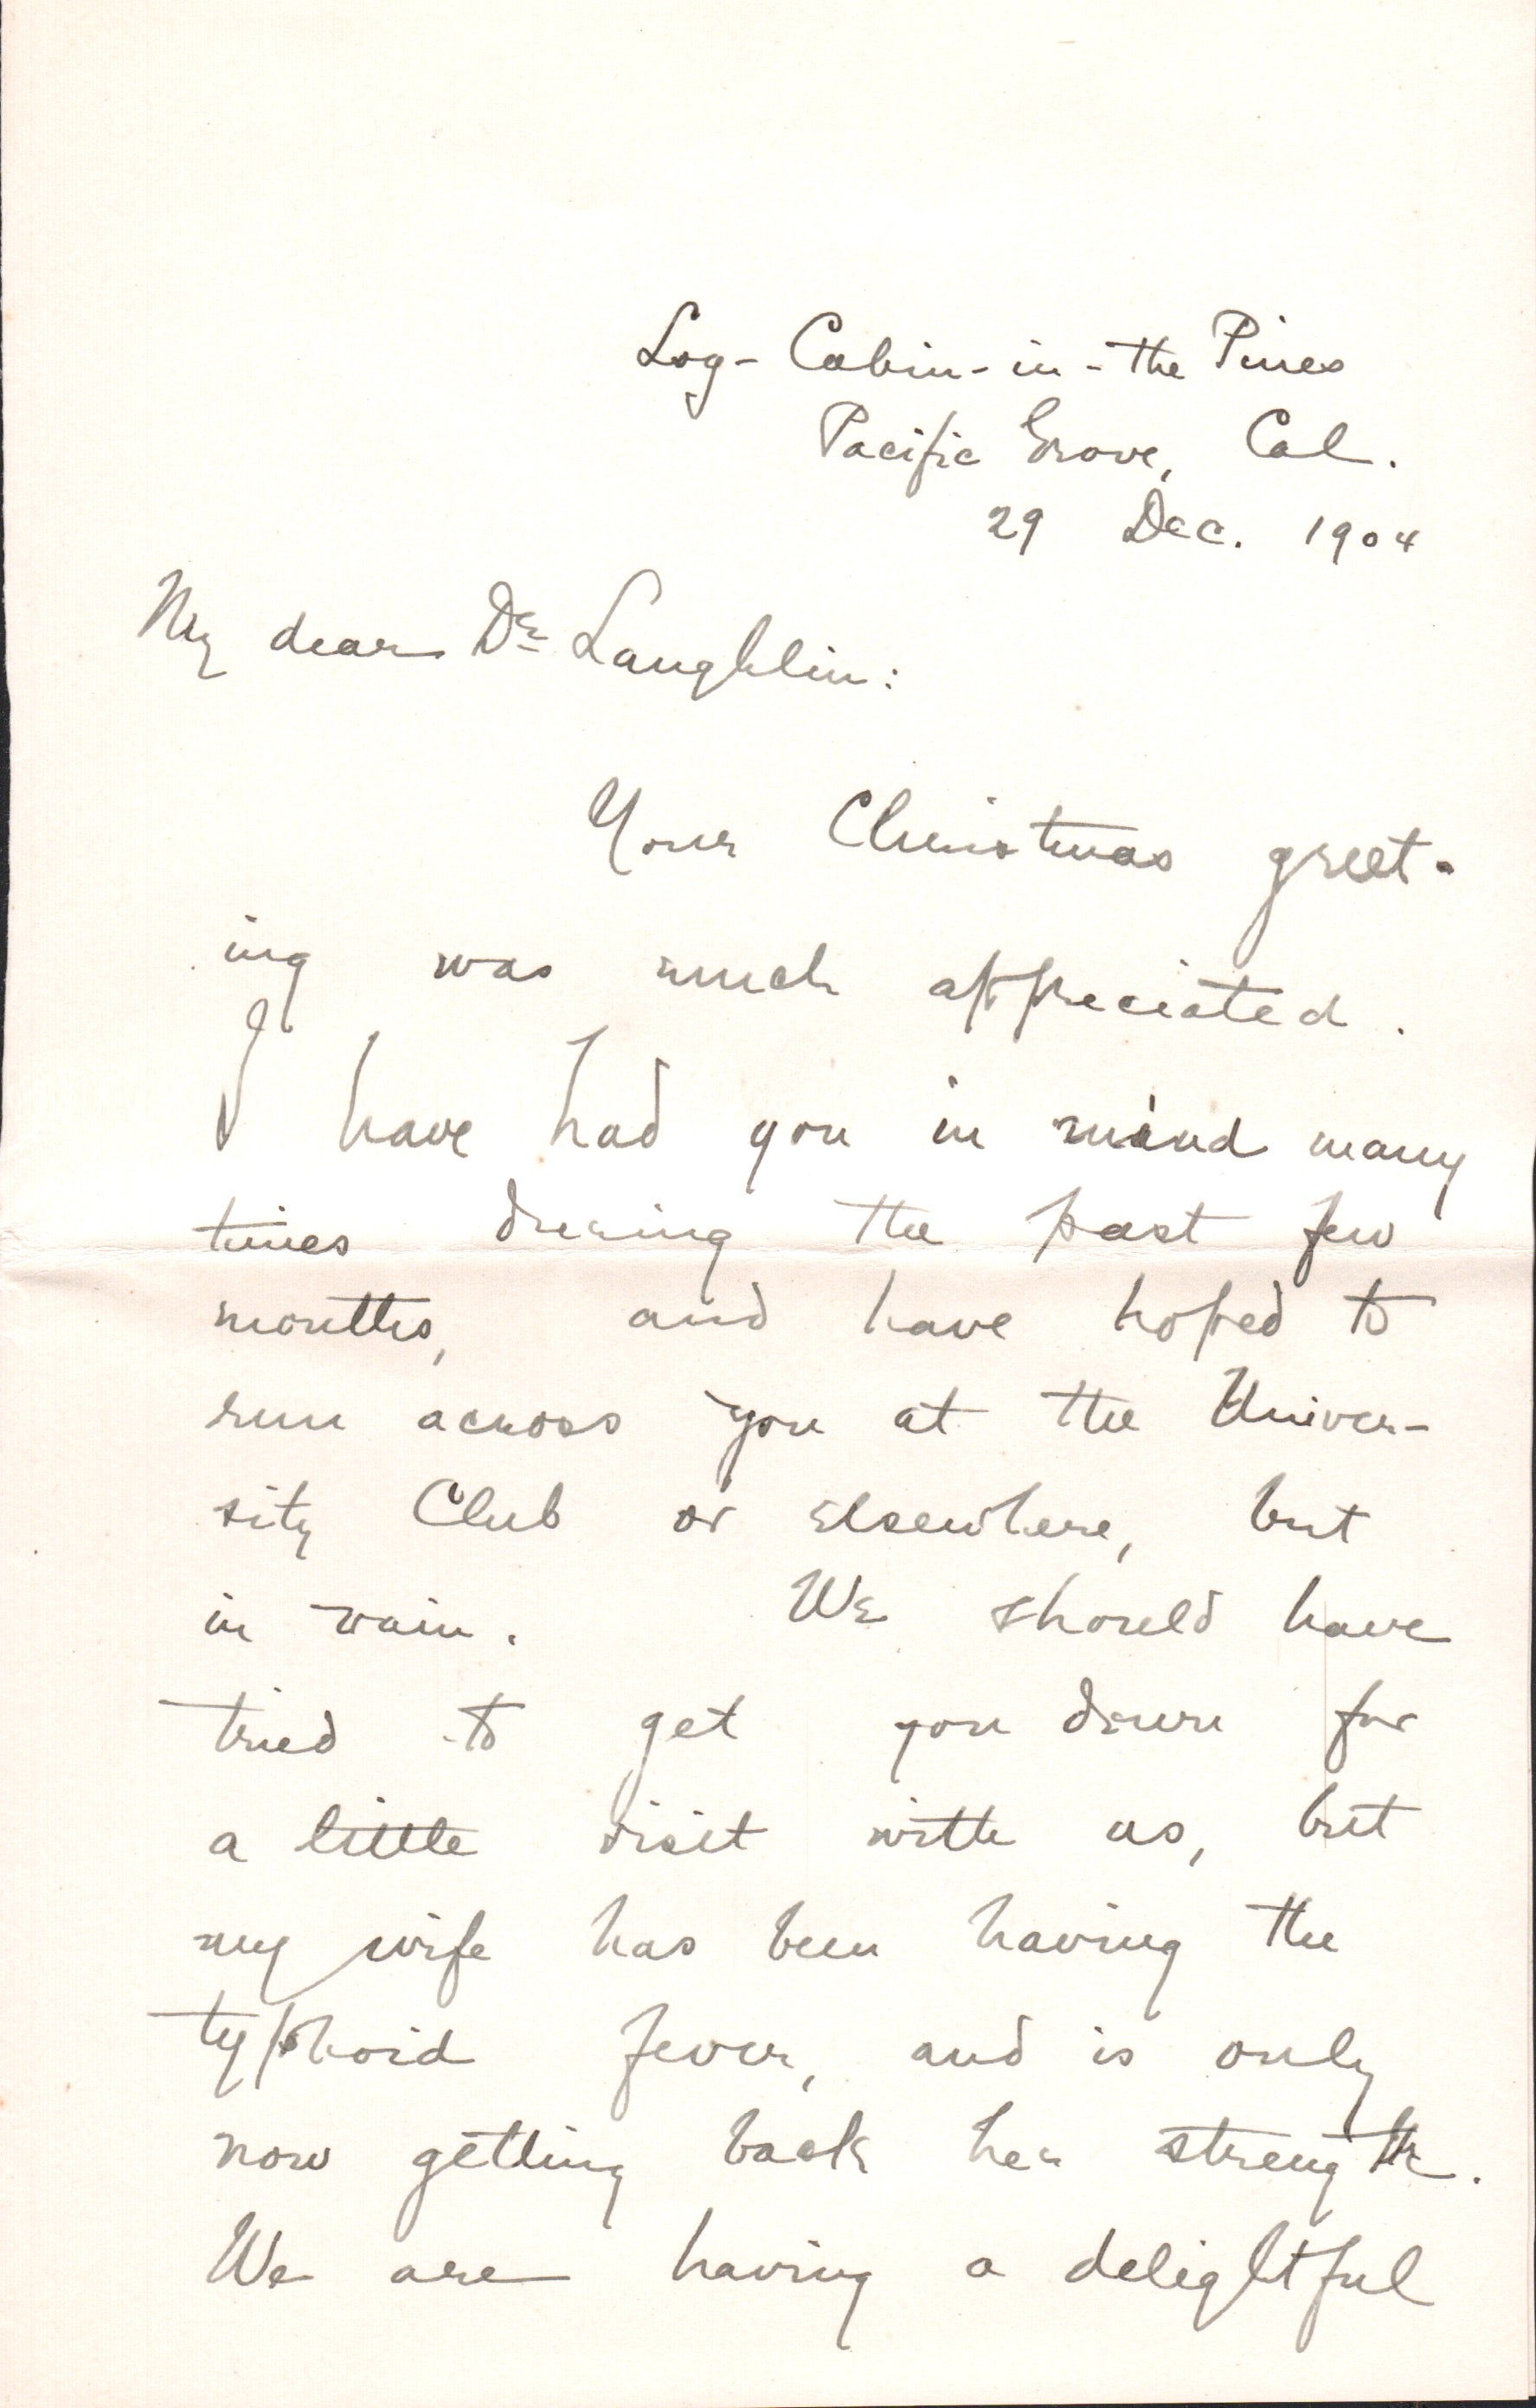 Log-Cabin-in-the Pines
Pacific Grove, Cal.
29 Dec. 1904
My dear Dr Laughlin:
Your Christmas greet-
ing was much appreciated.
I have had you in mind many
times during the past few
months, and have hoped to
run across you at the Univer-
sity Club or elsewhere, but
in vain. We should have
tried to get you down for
a little visit with us, but
my wife has been having the
typhoid fever, and is only
now getting back her strength.
We are having a delightful